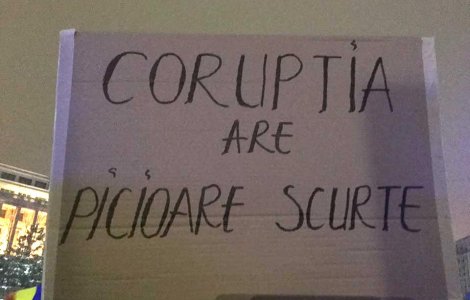 CORUPTiA
ARE
PiCiOARE SCURTE